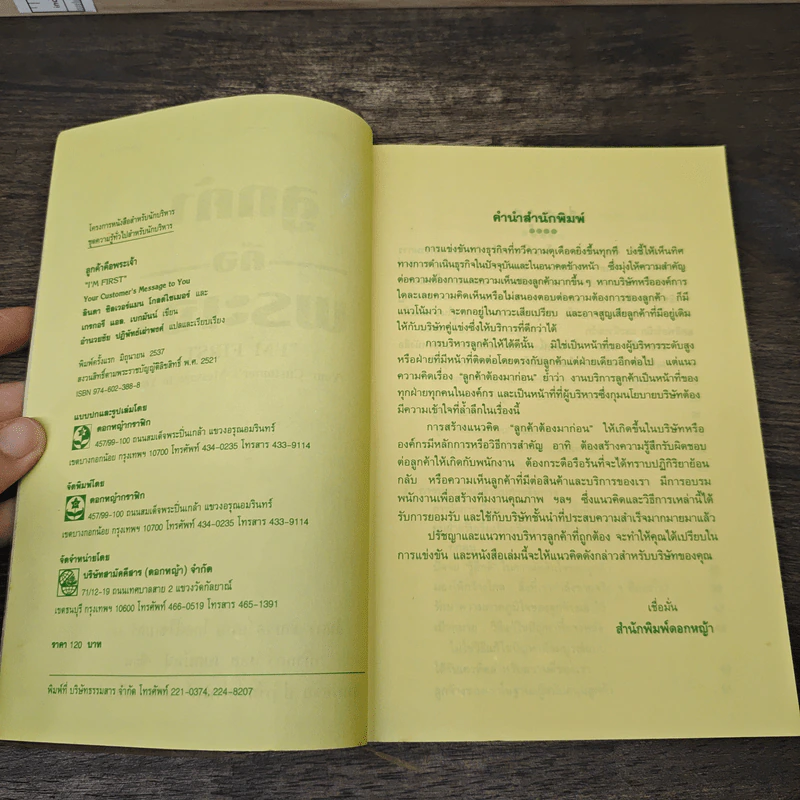 โครงการหนังสือสำหรับนักบริหาร
ชุดความรู้ทั่วไปสำหรับนักบริหาร
ลูกค้าคือพระเจ้า
"I'M FIRST"
Your Customer's Message to You
ลินดา ซิลเวอร์แมน โกลด์ไซเมอร์ และ
เกรกอรี แอล. เบกมันน์ เขียน
อำนวยชัย ปฏิพัทธ์เผ่าพงศ์ แปลและเรียบเรียง
พิมพ์ครั้งแรก มิถุนายน 2537
สงวนลิขสิทธิ์ตามพระราชบัญญัติลิขสิทธิ์ พ.ศ. 2521
ISBN 974-602-388-8
แบบปกและรูปเล่มโดย
ดอกหญ้ากราฟิก
457/99-100 ถนนสมเด็จพระปิ่นเกล้า แขวงอรุณอมรินทร์
เขตบางกอกน้อย กรุงเทพฯ 10700 โทรศัพท์ 434-0235 โทรสาร 433-9114
จัดพิมพ์โดย
ดอกหญ้ากราฟิก
457/99-100 ถนนสมเด็จพระปิ่นเกล้า แขวงอรุณอมรินทร์
เขตบางกอกน้อย กรุงเทพฯ 10700 โทรศัพท์ 434-0235 โทรสาร 433-9114
จัดจำหน่ายโดย
บริษัทสามัคคีสาร (ดอกหญ้า) จำกัด
71/12-19 ถนนเทศบาลสาย 2 แขวงวัดกัลยาณ์
เขตธนบุรี กรุงเทพฯ 10600 โทรศัพท์ 466-0519 โทรสาร 465-1391
ราคา 120 บาท
พิมพ์ที่ บริษัทธรรมสาร จำกัด โทรศัพท์ 221-0374, 224-8207
คำนำสำนักพิมพ์
การแข่งขันทางธุรกิจที่ทวีความดุเดือดยิ่งขึ้นทุกที บ่งชี้ให้เห็นทิศ
ทางการดำเนินธุรกิจในปัจจุบันและในอนาคตข้างหน้า ซึ่งมุ่งให้ความสำคัญ
ต่อความต้องการและความเห็นของลูกค้ามากขึ้น ๆ หากบริษัทหรือองค์การ
ใดละเลยความคิดเห็นหรือไม่สนองตอบต่อความต้องการของลูกค้า ก็มี
แนวโน้มว่า จะตกอยู่ในภาวะเสียเปรียบ และอาจสูญเสียลูกค้าที่มีอยู่เดิม
ให้กับบริษัทคู่แข่งซึ่งให้บริการที่ดีกว่าได้
การบริหารลูกค้าให้ได้ดีนั้น มิใช่เป็นหน้าที่ของผู้บริหารระดับสูง
หรือฝ่ายที่มีหน้าที่ติดต่อโดยตรงกับลูกค้าแต่ฝ่ายเดียวอีกต่อไป แต่แนว
ความคิดเรื่อง "ลูกค้าต้องมาก่อน" ย้ำว่า งานบริการลูกค้าเป็นหน้าที่ของ
ทุกฝ่ายทุกคนในองค์กร และเป็นหน้าที่ที่ผู้บริหารซึ่งกุมนโยบายบริษัทต้อง
มีความเข้าใจที่ล้ำลึกในเรื่องนี้
การสร้างแนวคิด "ลูกค้าต้องมาก่อน" ให้เกิดขึ้นในบริษัทหรือ
องค์กรมีหลักการหรือวิธีการสำคัญ อาทิ ต้องสร้างความรู้สึกรับผิดชอบ
ต่อลูกค้าให้เกิดกับพนักงาน ต้องกระตือรือร้นที่จะได้ทราบปฏิกิริยาย้อน
กลับ หรือความเห็นลูกค้าที่มีต่อสินค้าและบริการของเรา มีการอบรม
พนักงานเพื่อสร้างทีมงานคุณภาพ ฯลฯ ซึ่งแนวคิดและวิธีการเหล่านี้ได้
รับการยอมรับ และใช้กับบริษัทชั้นนำที่ประสบความสำเร็จมากมายมาแล้ว
ปรัชญาและแนวทางบริหารลูกค้าที่ถูกต้อง จะทำให้คุณได้เปรียบใน
การแข่งขัน และหนังสือเล่มนี้จะให้แนวคิดดังกล่าวสำหรับบริษัทของคุณ
เชื่อมั่น
สำนักพิมพ์ดอกหญ้า